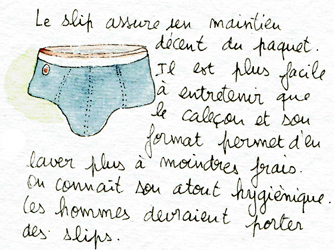 Le slip assure un maintien
décent du paquet.
Il est plus facile
à entretenir que
le caleçon et son
format permet d'en
laver plus à moindres frais.
On connaît son atout hygiénique.
Les hommes devraient porter
des slips.